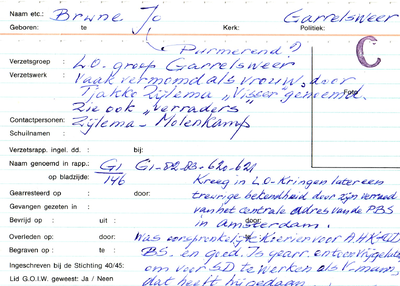 Naam etc.: Brune Jo Garrelsweer
Geboren: te Kerk: Politiek:
Purmerend?
C
Verzetsgroep : L.O. groep Garrelsweer
Verzetswerk : Vaak vermomd als vrouw, door
Tjakko Zijlema "Visser" genoemd.
Foto
Zie ook "Verraders"
Contactpersonen: Zijlema - Molenkamp
Schuilnaam :
Verzetsrapp. ingel. dd. : bij:
Naam genoemd in rapp.: G1 G1-82-83-620-621
op bladzijde: 146 Kreeg in L.O-Kringen later een
Gearresteerd op : door: treurige bekendheid door zijn verraad
Gevangen gezeten in : van het centrale adres van de PBS
Bevrijd op : uit : door: in Amsterdam.
Overleden op: door: Was oorspronkelijk Koerier voor A.H.K.
Begraven op : te : BS. en goed. Is gearr. en toen vrijgelaten
Ingeschreven bij de Stichting 40/45: om voor SD te werken als V-mann,
Lid G.O.I.W. geweest: Ja / Neen dat heeft hij gedaan